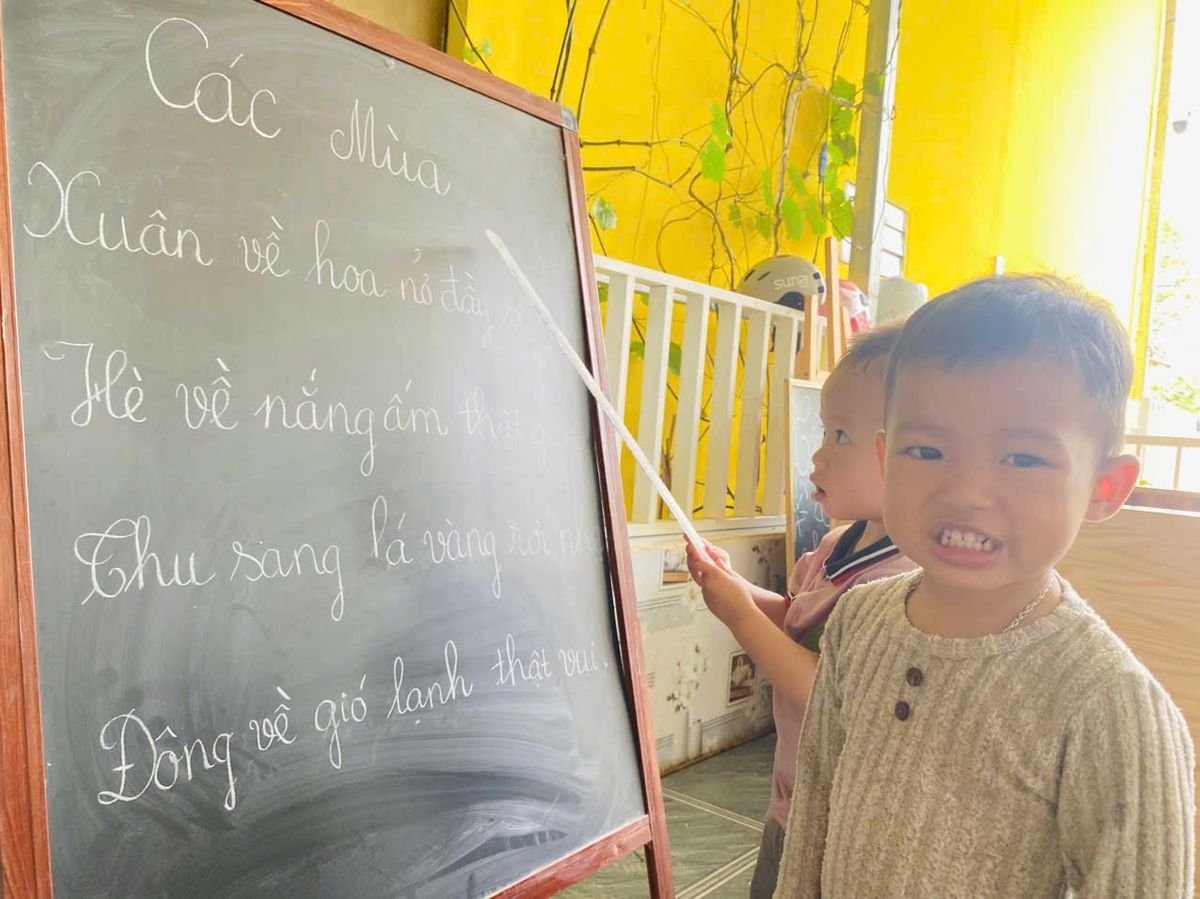 Các Mùa
Xuân về hoa nở đầy
Hè về nắng ấm thật
Thu sang lá vàng rơi như
Đông về gió lạnh thật vui.